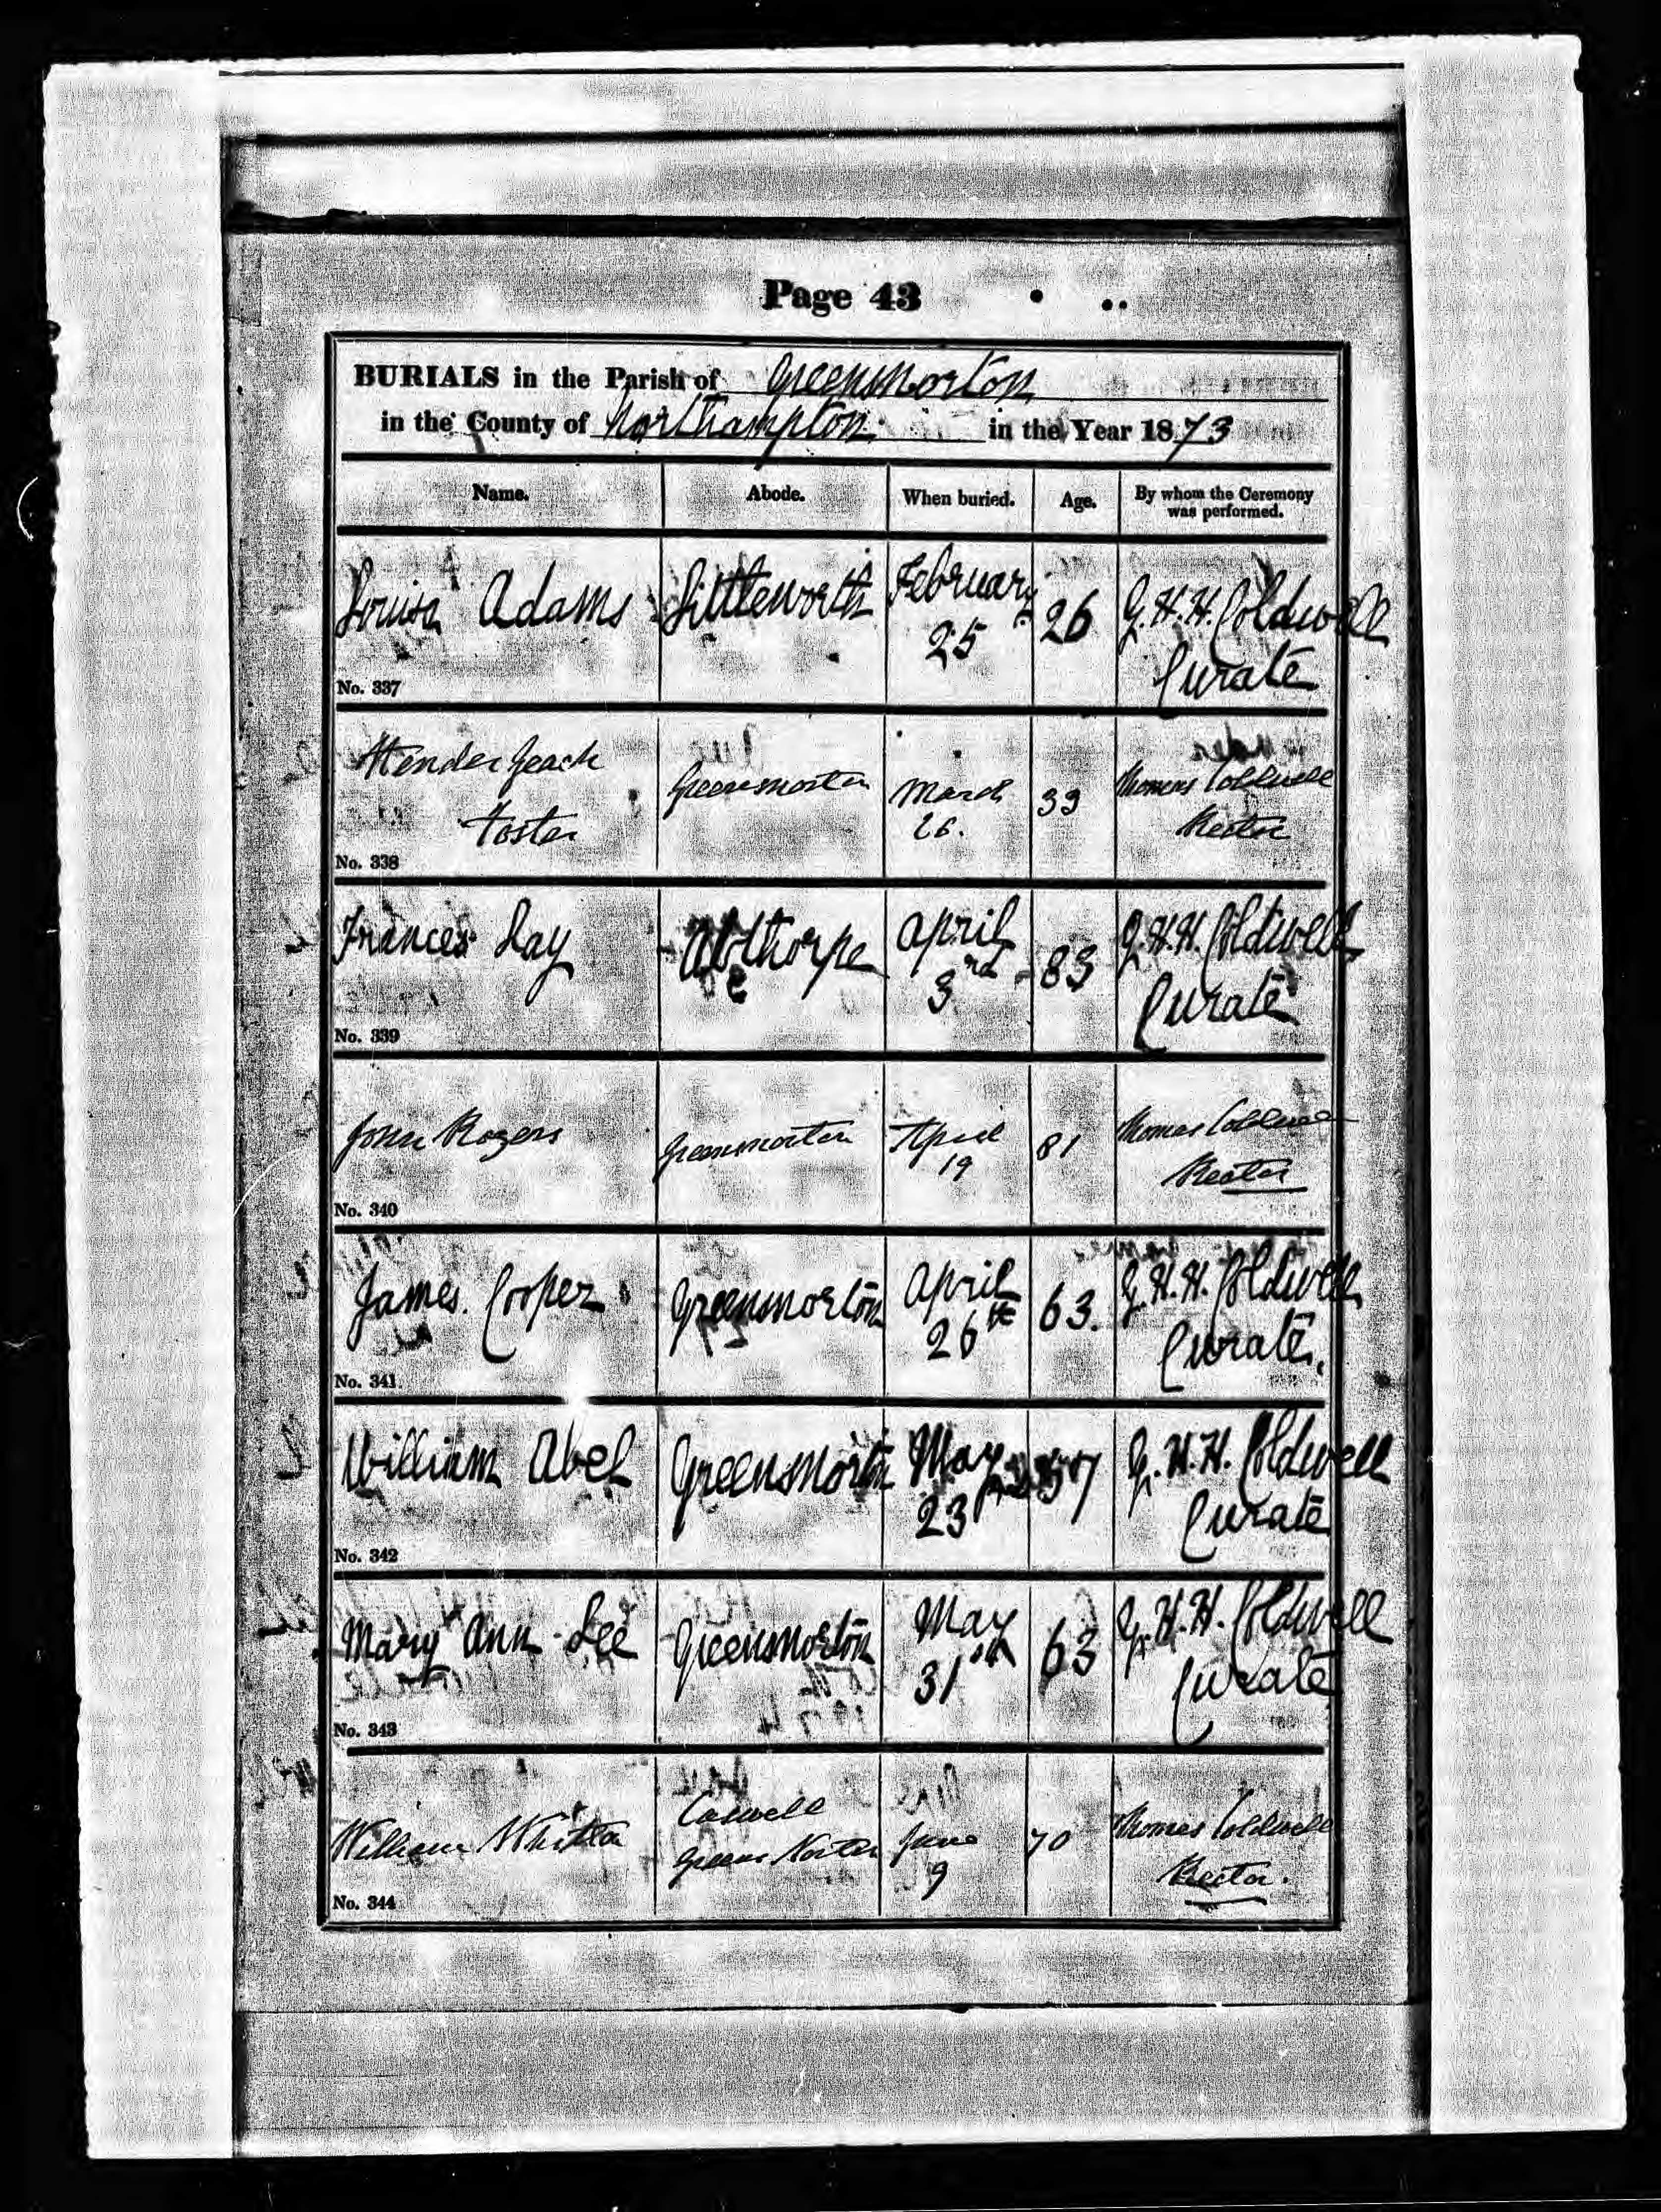 Page 43
BURIALS in the Parish of Greensnorton
in the County of Northampton in the Year 1873
Name. Abode. When buried. Age. By whom the Ceremony was performed.
Louisa Adams Littleworth February 26 G. H. H. Coldwell
25 Curate
No. 337
Foster Greensnorton March 39 Thomas Coldwell
26. Rector
No. 338
Frances Lay Abthorpe April 83 G. H. H. Coldwell
3rd Curate
No. 339
John Rogers Greensnorton April 81 Thomas Coldwell
19 Rector
No. 340
James Cooper Greensnorton April 63. G. H. H. Coldwell
26th Curate.
No. 341
William Abel Greensnorton May 57 G. H. H. Coldwell
23 Curate
No. 342
Mary Ann Lee Greensnorton May 63 G. H. H. Coldwell
31st Curate
No. 343
William Whitton Caswell June 70 Thomas Coldwell
Greens Norton 9 Rector.
No. 344